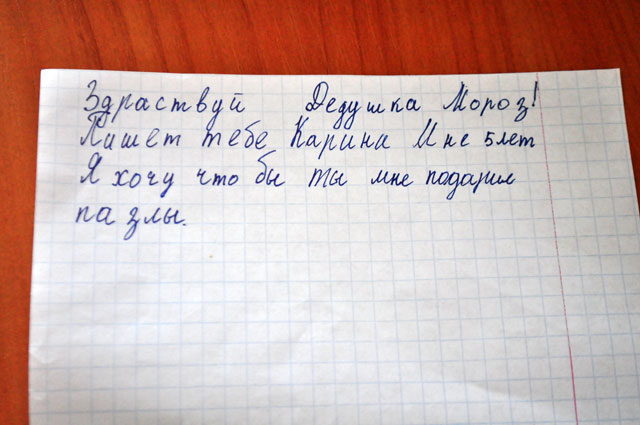 Здраствуй Дедушка Мороз!
Пишет тебе Карина Мне 5 лет
Я хочу что бы ты мне подарил
па злы.